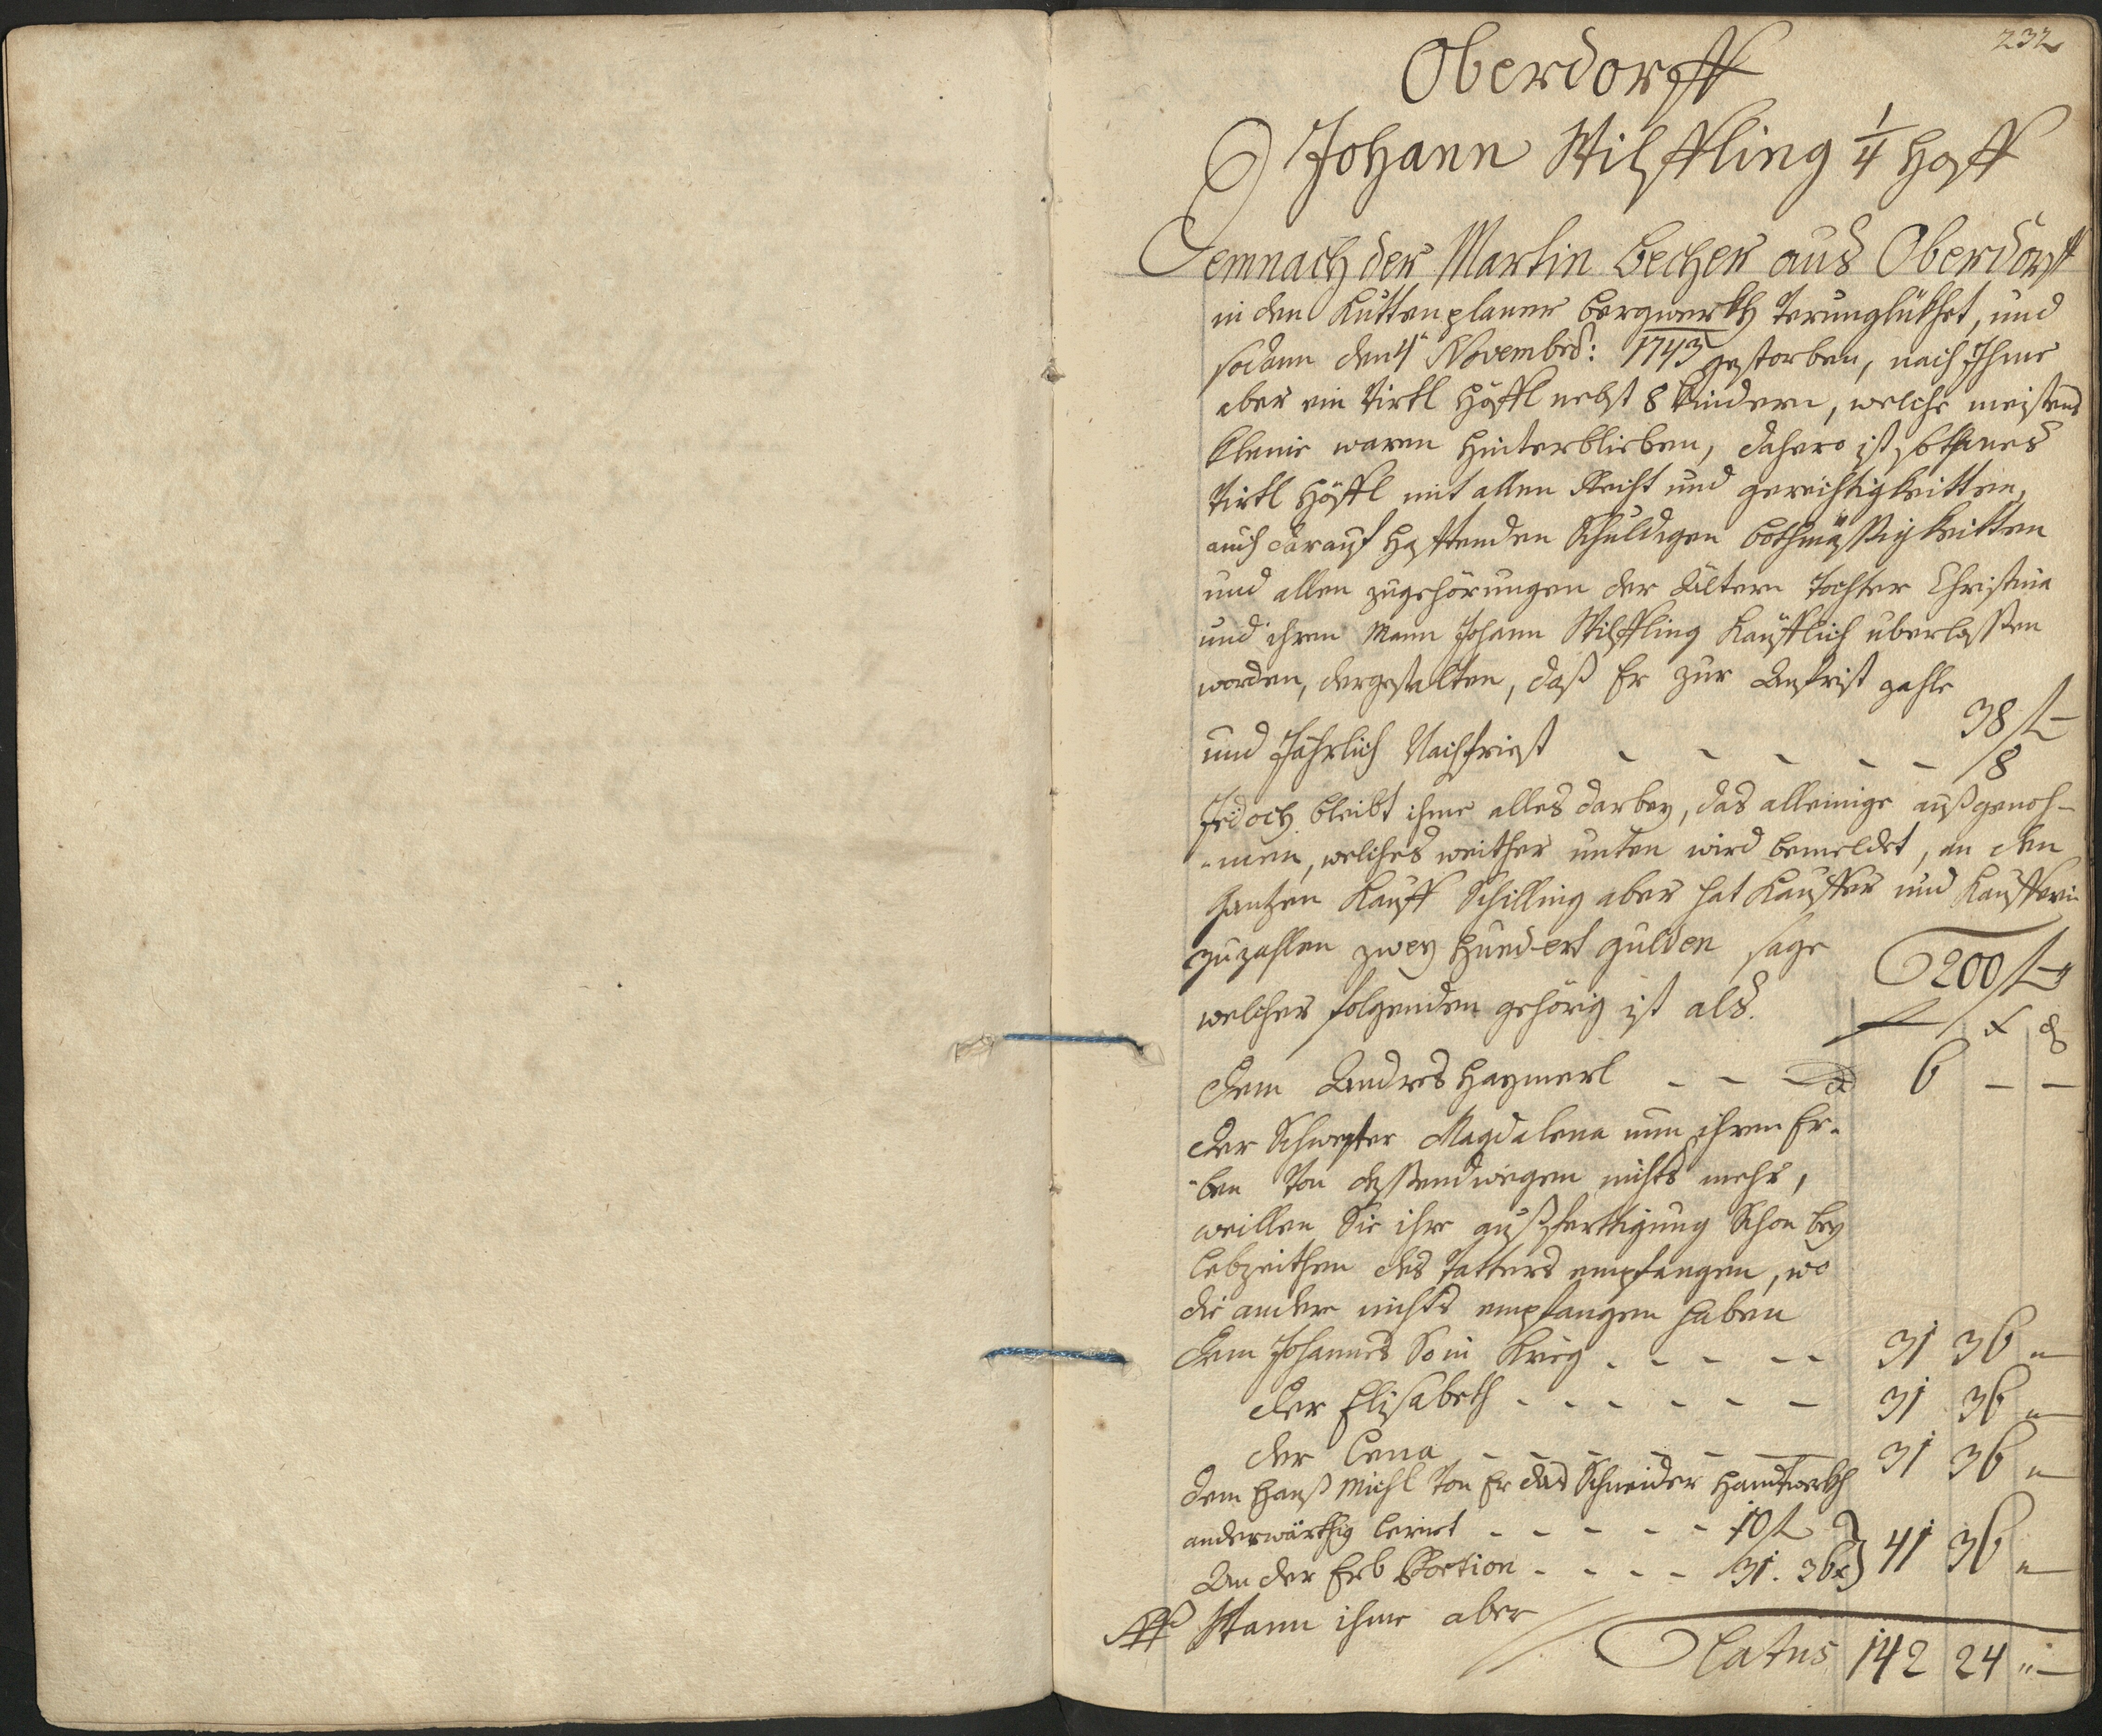 232
Oberdorff
Johann Wilffling 1/4 Hoff
Demnach der Martin Becher aus Oberdorff
in den Kuttenplaner Bergwerkh Verunglükhet, und
sodann den 4t Novembr: 1743 gestorben, nach Ihme
aber ein Virtl Höffl nebst 8 Kindern, welche meistens
kleine waren hinterblieben, dahero ist sothanes
Virtl Höffl mit allen Recht und gerechtigkeitten,
auch darauf hafftenden Schuldigen Bothmässigkeitten
und allen zugehörungen der Ältern Tochter Christina
und ihren Mann Johann Wilffling Kaüfflich uberlassen
worden, dergestalten, daß Er zur Anfrist zahle
38 f –
und Jährlich Nachfriest - - - - - 8
Jedoch bleibt ihme alles darbey, das alleinige außgenoh-
-men, welches weither unten wird bemeldet, an den
Gantzen Kauff Schilling aber hat Kauffer und Kaufferin
zuzahlen zwey Hundert gulden sage
200 f –
welcher folgenden gehörig ist als.
f x d
Dem Andres Haymerl - - - 6 – –
Der Schwester Magdalena nun ihren Er-
-ben Von dessendwegen nichts mehr,
weillen Sie ihre außferttigung Schon bey
Lebzeithen des Vatters empfangen, wo
die andere nichts empfangen haben
Dem Johannes So in Krieg - - - - - 31 36 „–
der Elisabeth - - - - - - 31 36 „–
der Lena - - - - - - 31 36 „–
dem Hanß Michl Von Er das Schneider Handtwerkh
anderwärthig lernet - - - - - 10 f
An der Erb Portion - - - - 31. 36x } 41 36 „–
Wann ihme aber
Latus 142 24 „–